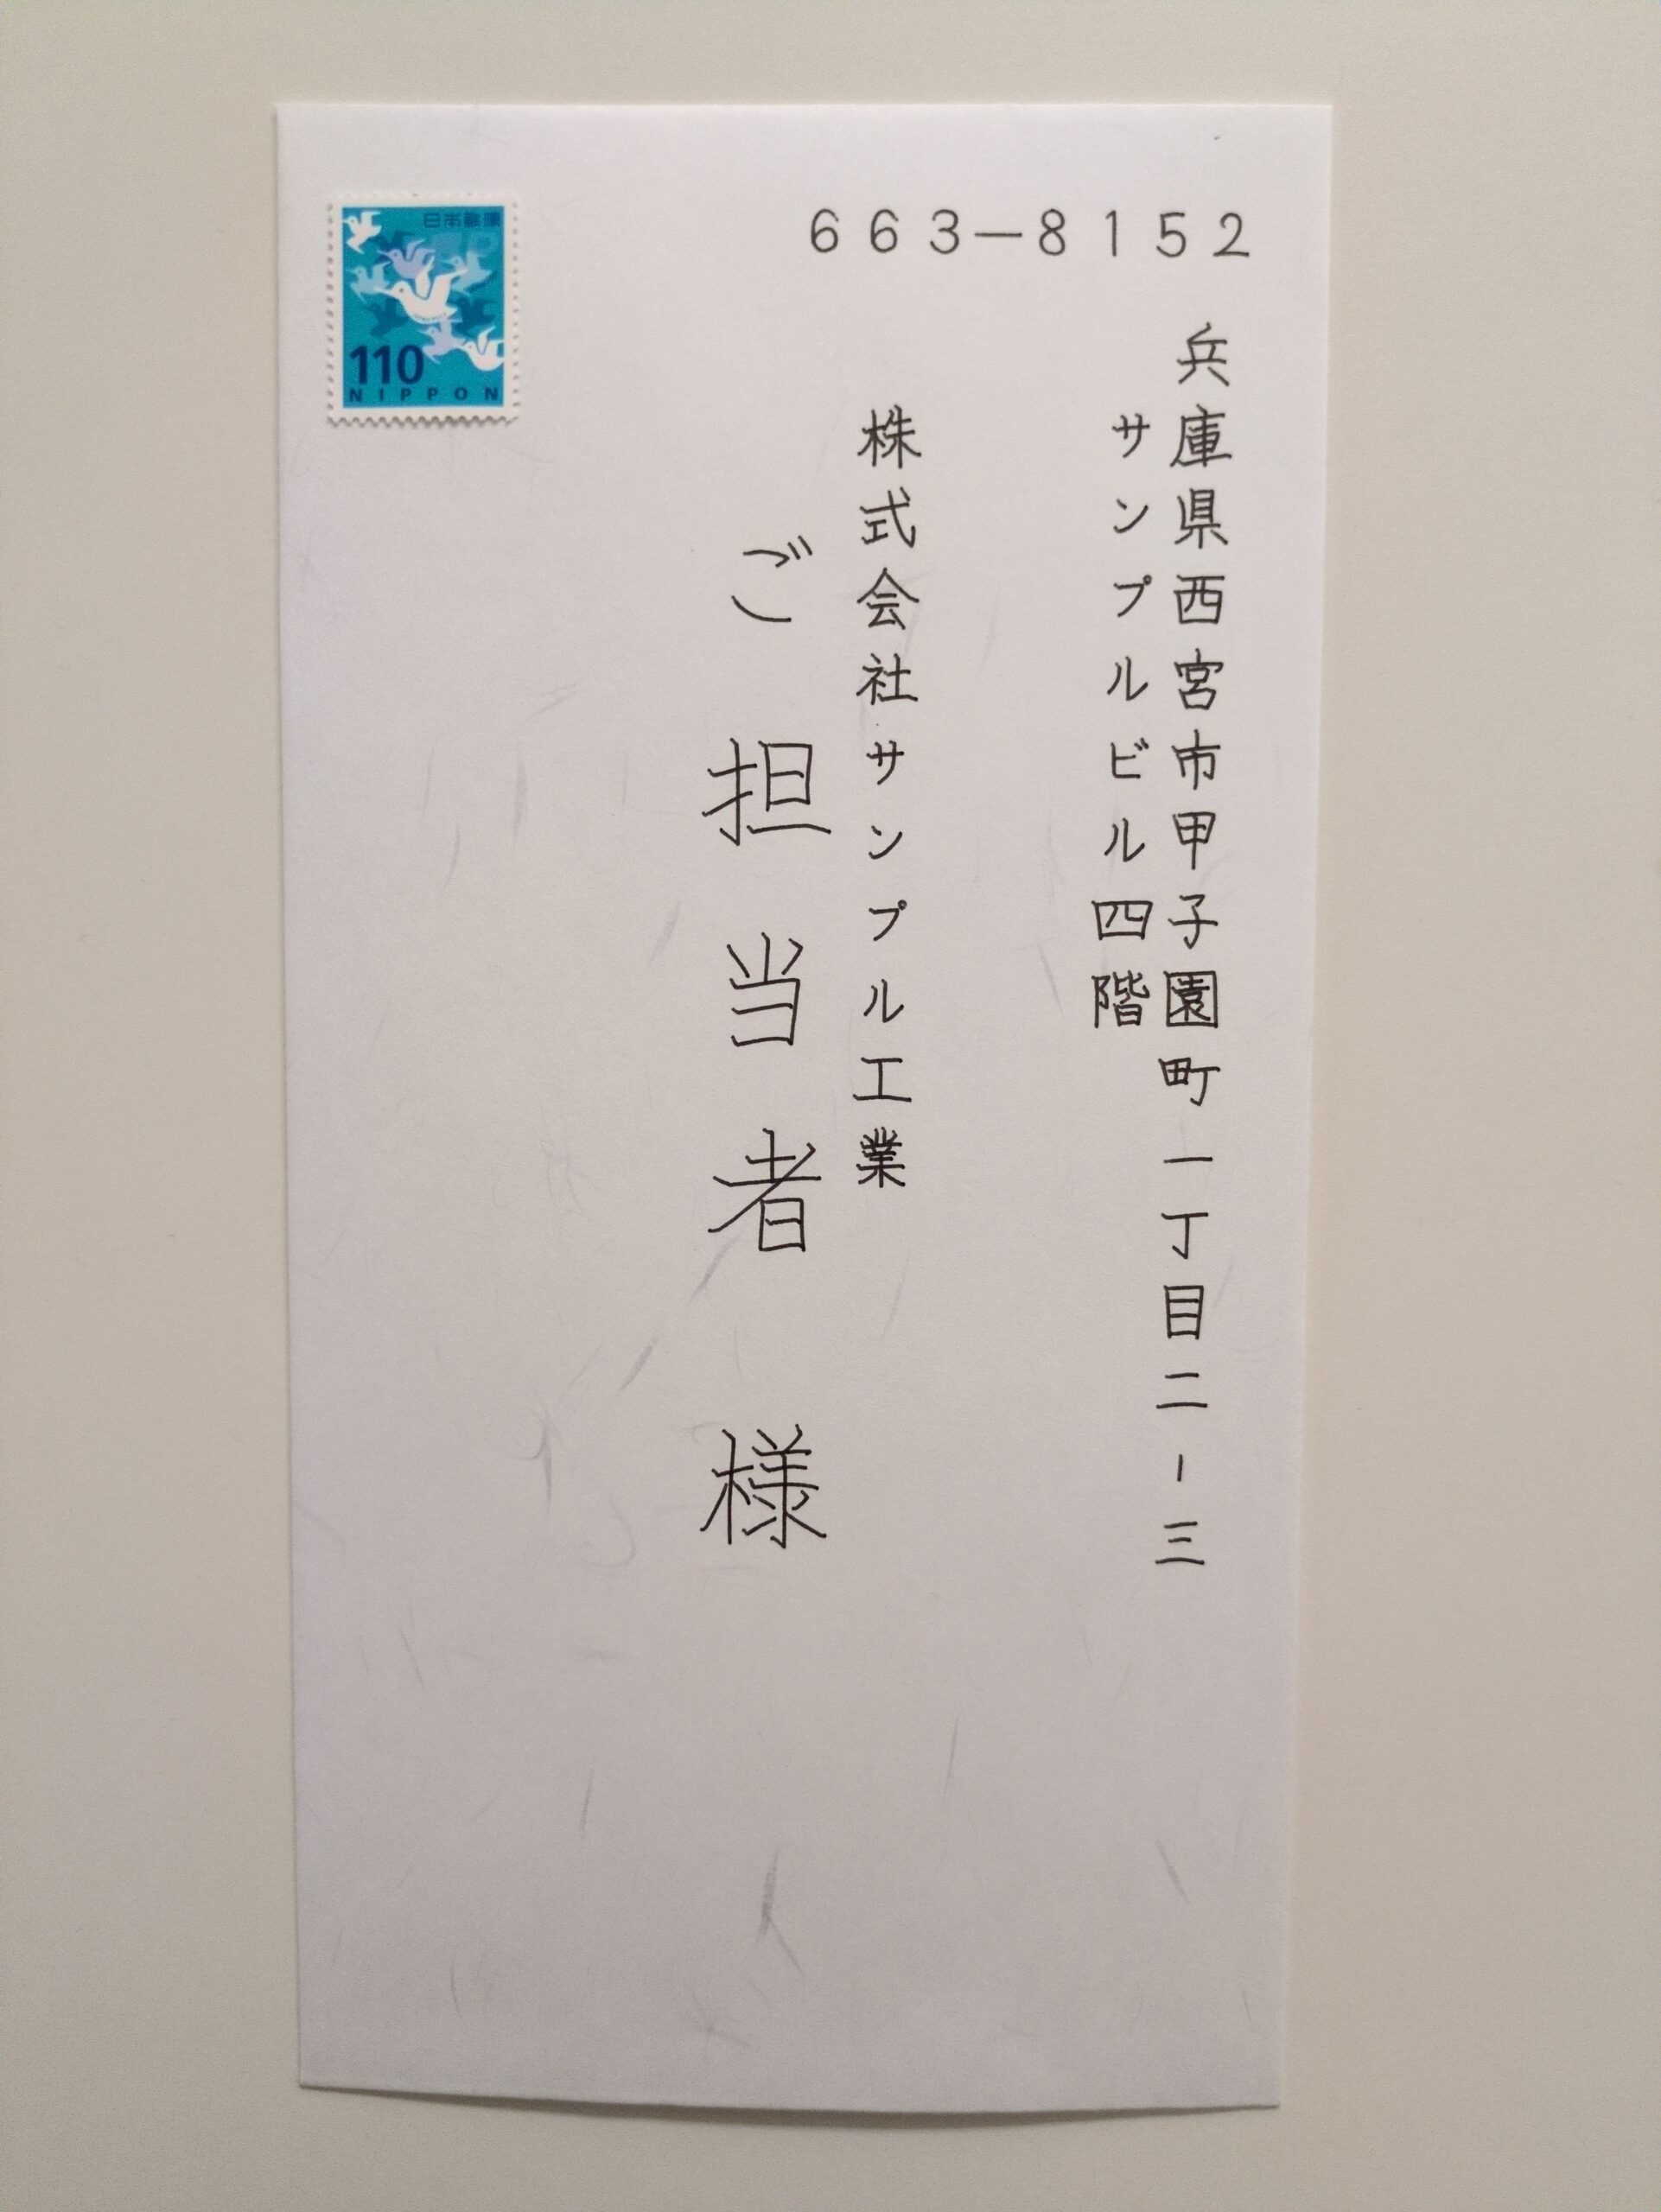 663-8152
兵庫県西宮市甲子園町一丁目二-三
サンプルビル四階
株式会社サンプル工業
ご担当者様
日本郵便
110
NIPPON